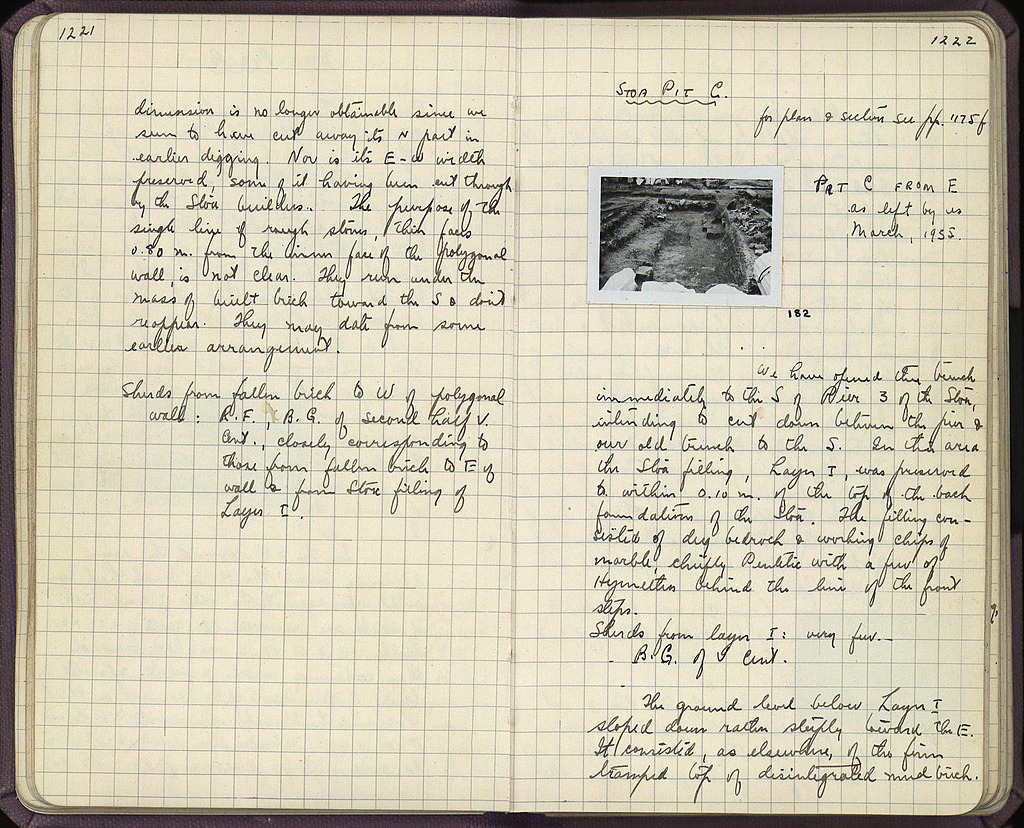 1221
dimension is no longer obtainable since we
seem to have cut away its N part in
earlier digging. Nor is its E-W width
preserved, some of it having been cut through
by the Stoa builders. The purpose of the
single line of rough stones, thin faces
0.80 m. from the inner face of the polygonal
wall, is not clear. They run under the
mass of built brick toward the S & don't
reappear. They may date from some
earlier arrangement.
Sherds from fallen brick to W of polygonal
wall: R.F., B.G. of second half V.
Cent., closely corresponding to
those from fallen brick to E of
wall & from Stoa filling of
Layer I.
1222
STOA PIT C.
for plan & section see pp. 1175 f
PIT C FROM E
as left by us
March, 1955.
182
We have opened this trench
immediately to the S of Pier 3 of the Stoa,
intending to cut down between the pier &
our old trench to the S. In this area
the Stoa filling, Layer I, was preserved
to within 0.10 m. of the top of the back
foundations of the Stoa. The filling con-
sisted of dug bedrock & working chips of
marble, chiefly Pentelic with a few of
Hymettian behind the line of the front
steps.
Sherds from layer I: very few.-
B.G. of V cent.
The ground level below Layer I
sloped down rather steeply toward the E.
It consisted, as elsewhere, of the firm
tramped top of disintegrated mud brick.